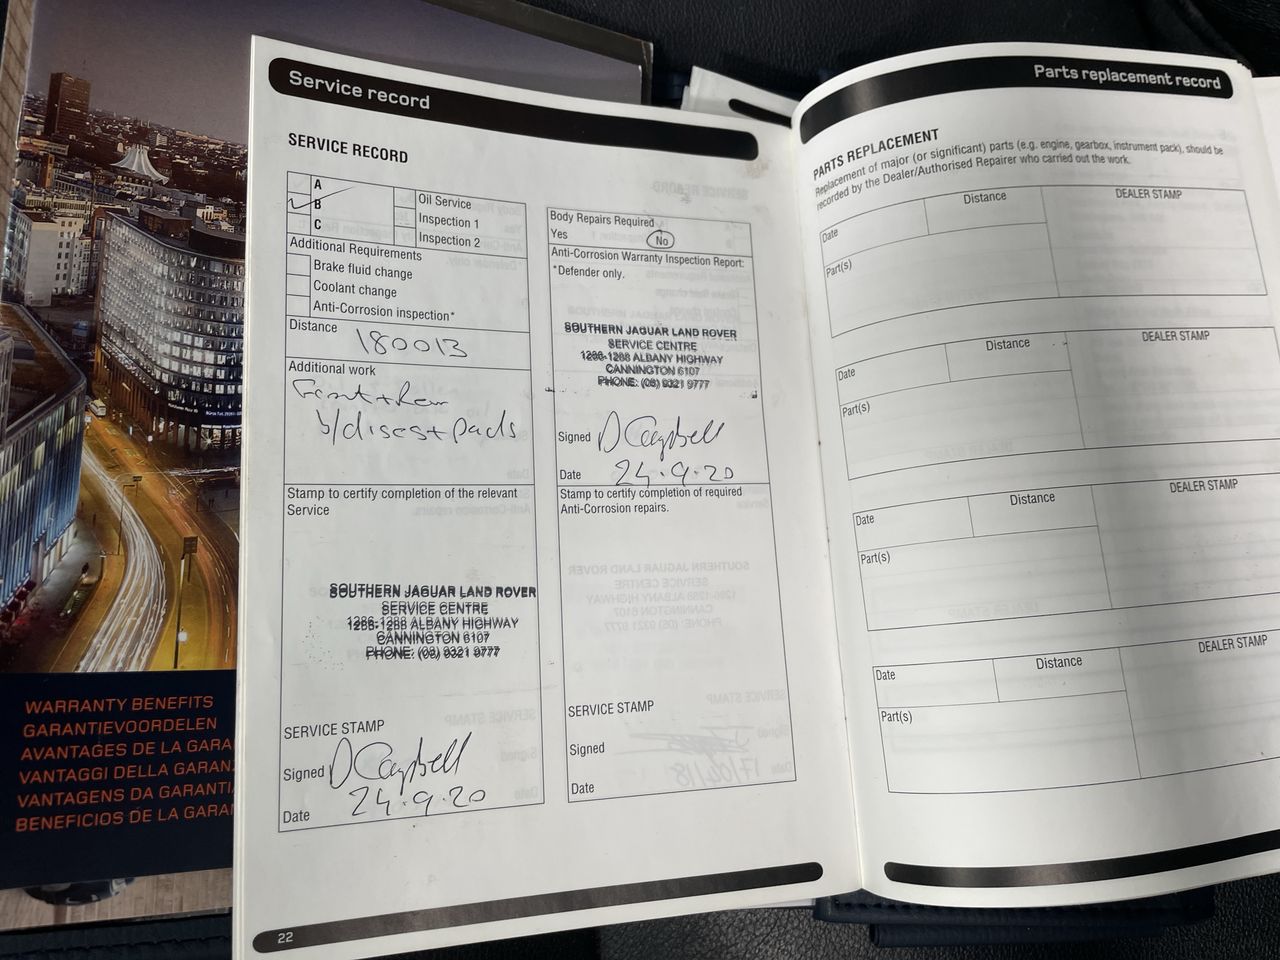 Service record
SERVICE RECORD
A
B
C
Oil Service
Inspection 1
Inspection 2
Additional Requirements
Brake fluid change
Coolant change
Anti-Corrosion inspection*
Distance 180013
Additional work
Front + Rear
b/discs + pads
Stamp to certify completion of the relevant
Service
SOUTHERN JAGUAR LAND ROVER
SERVICE CENTRE
1286-1288 ALBANY HIGHWAY
CANNINGTON 6107
PHONE: (08) 9321 9777
SERVICE STAMP
Signed D Campbell
Date 24.9.20
Body Repairs Required
Yes No
Anti-Corrosion Warranty Inspection Report:
*Defender only.
SOUTHERN JAGUAR LAND ROVER
SERVICE CENTRE
1286-1288 ALBANY HIGHWAY
CANNINGTON 6107
PHONE: (08) 9321 9777
Signed D Campbell
Date 24.9.20
Stamp to certify completion of required
Anti-Corrosion repairs.
SERVICE STAMP
Signed
Date
22
Parts replacement record
PARTS REPLACEMENT
Replacement of major (or significant) parts (e.g. engine, gearbox, instrument pack), should be
recorded by the Dealer/Authorised Repairer who carried out the work.
Date Distance DEALER STAMP
Part(s)
Date Distance DEALER STAMP
Part(s)
Date Distance DEALER STAMP
Part(s)
Date Distance DEALER STAMP
Part(s)
WARRANTY BENEFITS
GARANTIEVOORDELEN
AVANTAGES DE LA GARA
VANTAGGI DELLA GARAN
VANTAGENS DA GARANTI
BENEFICIOS DE LA GARA